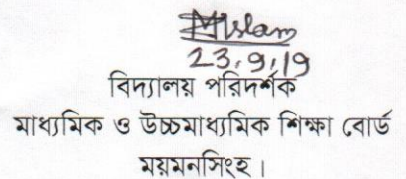 MIslam
23.9.19
বিদ্যালয় পরিদর্শক
মাধ্যমিক ও উচ্চমাধ্যমিক শিক্ষা বোর্ড
ময়মনসিংহ।